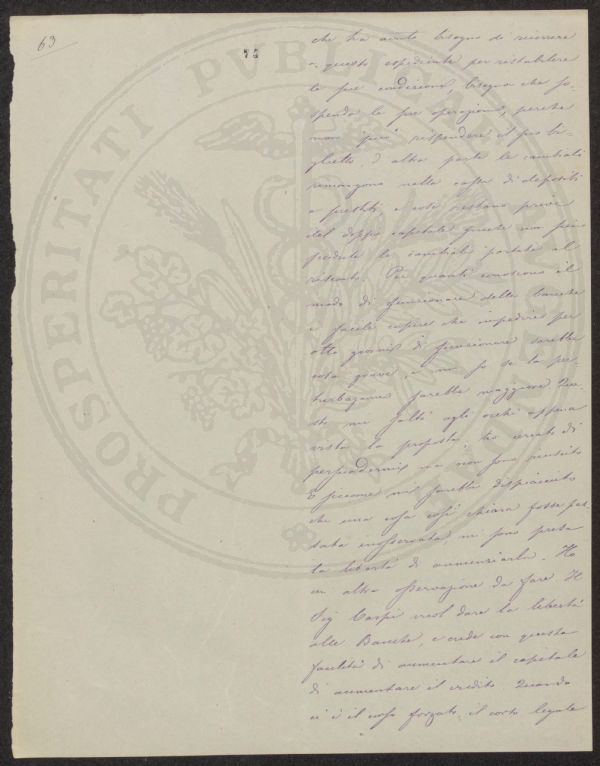 63
74
PROSPERITATI PVBLICAE
che ha avuto bisogno di ricorrere
a questo espediente per ristabilire
le sue condizioni, bisogna che so-
spenda le sue operazioni, perché
non può rispondere il suo bi-
glietto. D'altra parte le cambiali
rimangono nella cassa di depositi
e prestiti, e così restano prive
del doppio capitale queste non più
le cambiali portate al
risconto. Per quanti conoscono il
modo di funzionare delle banche
è facile capire che impedire per
otto giorni di funzionare sarebbe
cosa grave, e non so se la per-
turbazione sarebbe maggiore. Que-
sto mi saltò agli occhi appena
vista la proposta, ho cercato di
persuadermi ma non sono riuscito
E siccome mi sarebbe dispiaciuto
che una cosa così chiara fosse pas-
sata inosservata, mi sono presa
la libertà di annunziarla. Ho
un altra osservazione da fare. Il
Sig Carpi vuol dare la libertà
alle Banche, e crede con questa
facilità di aumentare il capitale
di aumentare il credito. Quando
ci è il corso forzato, il corso legale